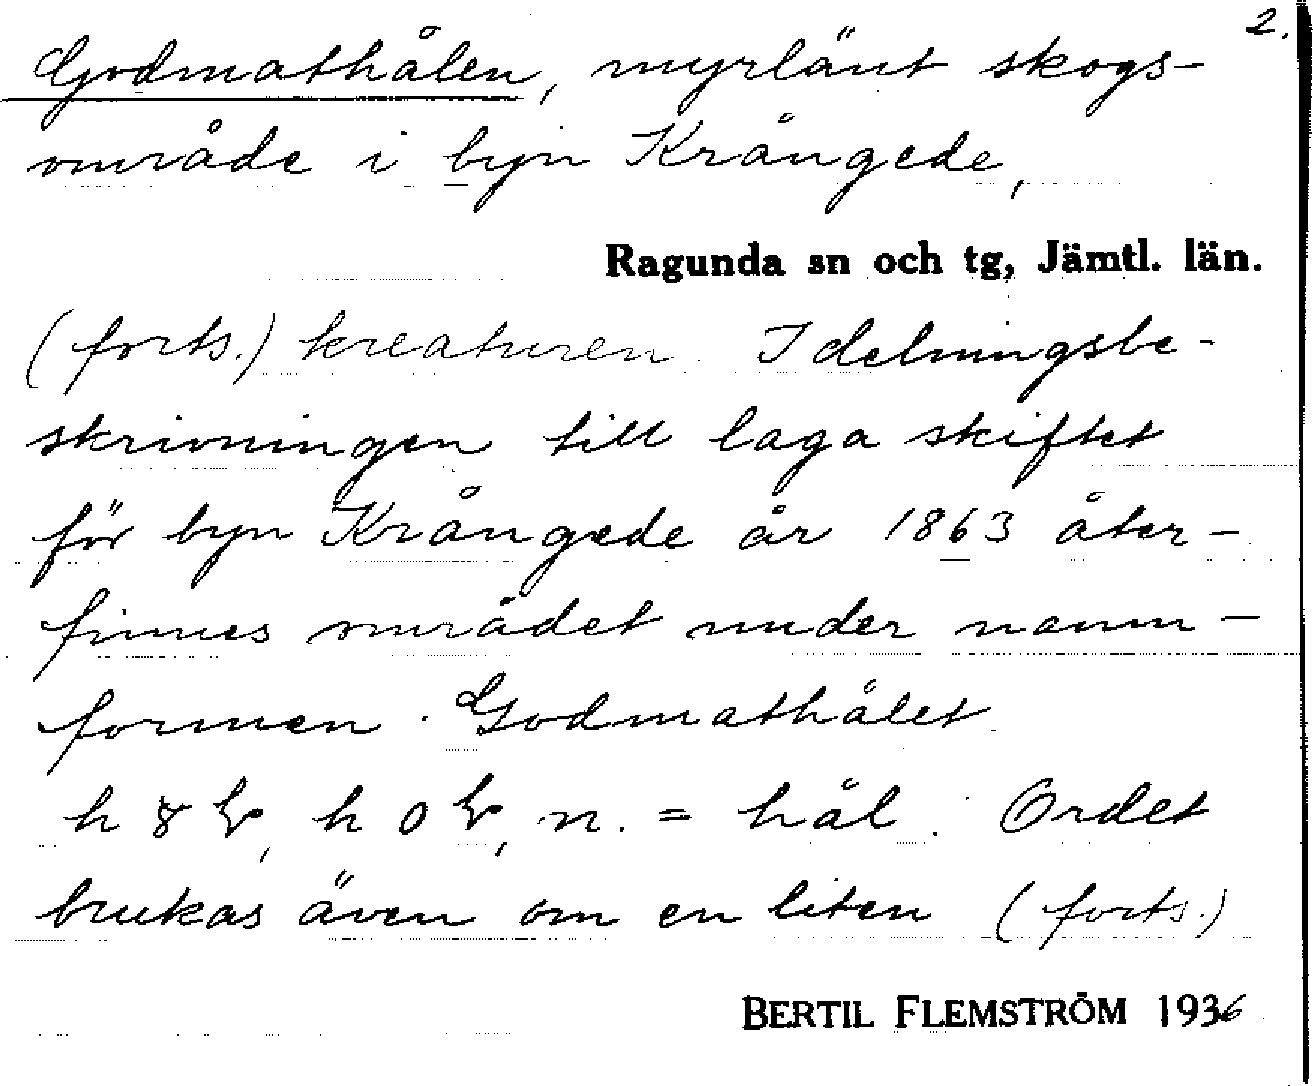 2.
Godmathålen, myrlänt skogs-
område i byn Krångede,
Ragunda sn och tg, Jämtl. län.
(forts.) kreaturen. I delningsbe-
skrivningen till laga skiftet
för byn Krångede år 1863 åter-
finnes området under namn-
formen Godmathålet
n. = hål. Ordet
brukas även om en liten (forts.)
BERTIL FLEMSTRÖM 1936